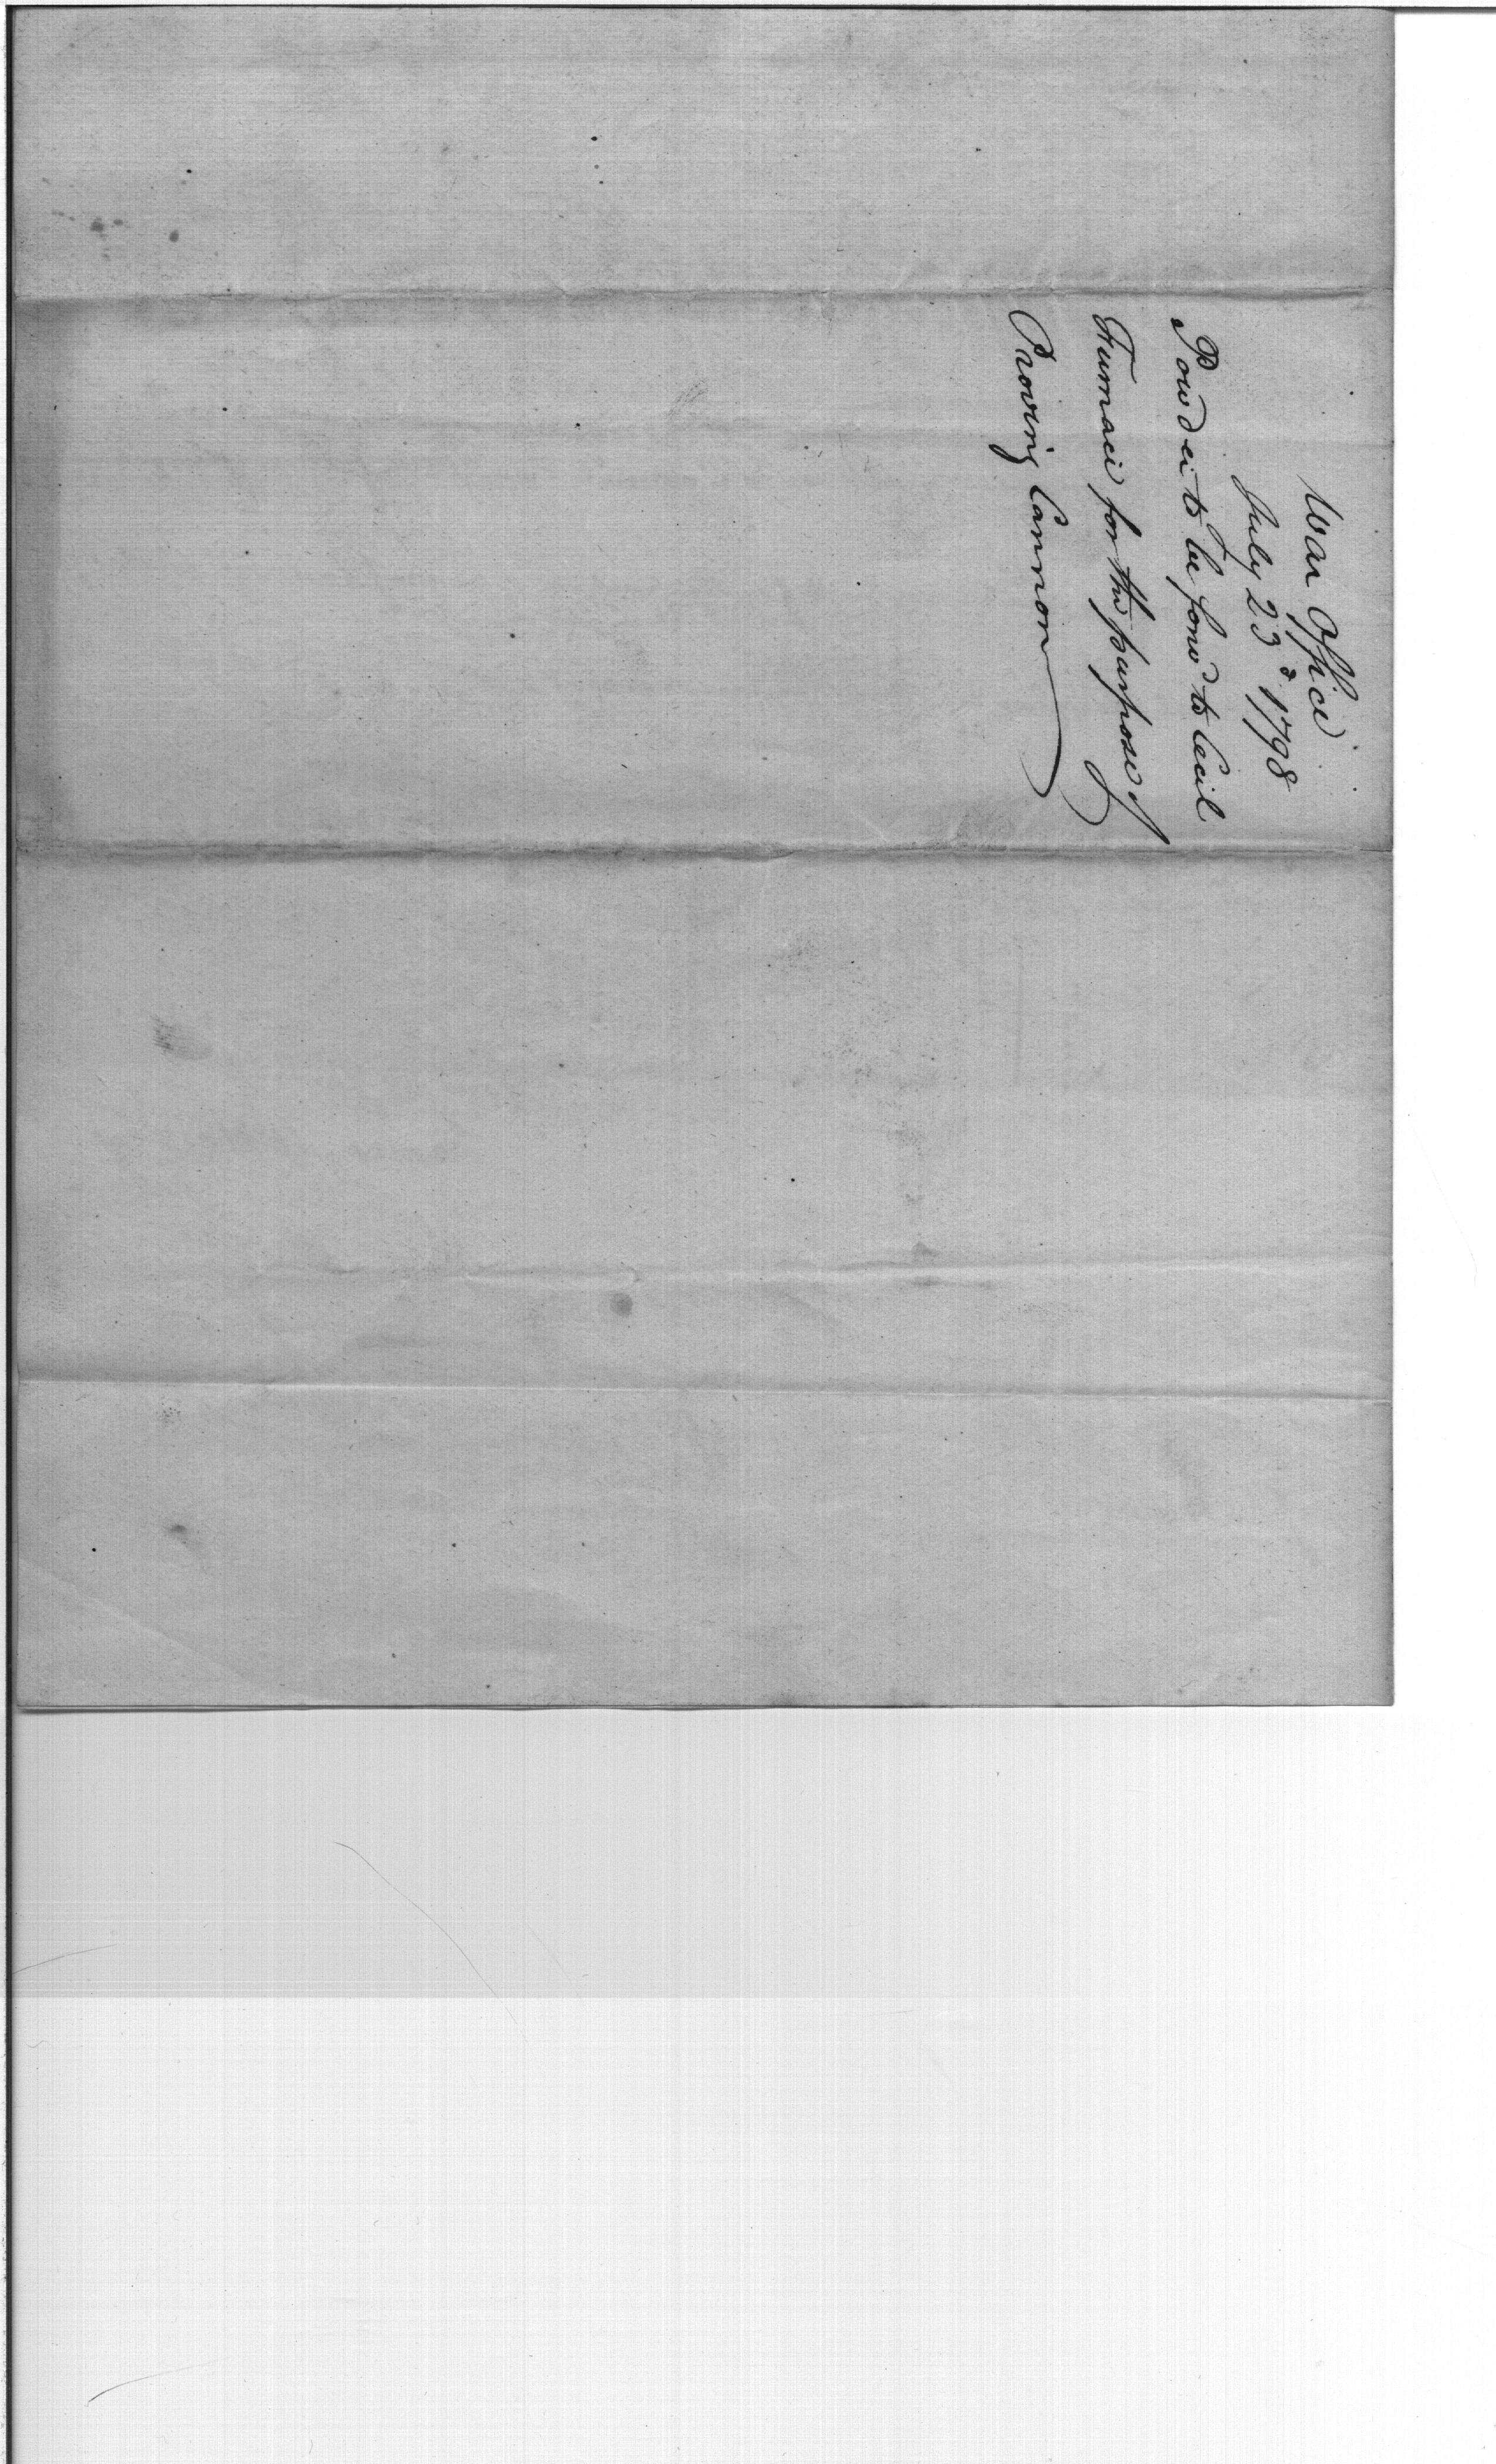 War Office
July 23d 1798
Powder to be forwd to Cecil
Furnace for the purpose of
Proving Cannon